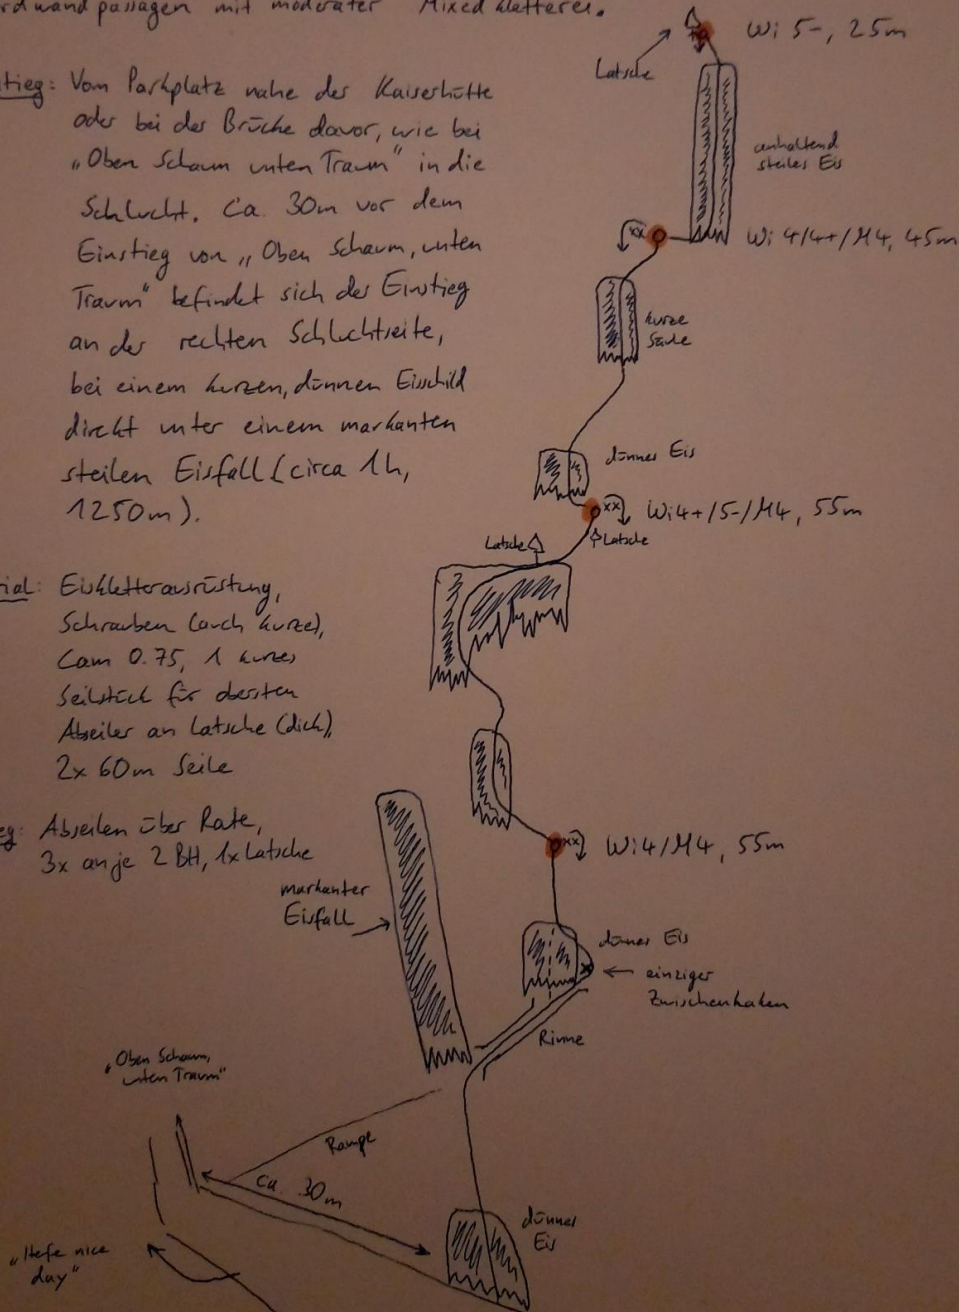 rdwandpassagen mit moderater Mixedkletterei.
stieg: Vom Parkplatz nahe der Kaiserhütte
oder bei der Brücke davor, wie bei
„Oben Schaum unten Traum" in die
Schlucht. Ca. 30m vor dem
Einstieg von „Oben Schaum, unten
Traum" befindet sich der Einstieg
an der rechten Schluchtseite,
bei einem kurzen, dünnen Eisschild
direkt unter einem markanten
steilen Eisfall (circa 1h,
1250m).
rial: Eiskletterausrüstung,
Schrauben (auch kurze),
Cam 0.75, 1 kurzes
Seilstück für obersten
Abseiler an Latsche (dick),
2x 60m Seile
eg: Abseilen über Route,
3x an je 2 BH, 1x Latsche
Wi 5-, 25m
Latsche
anhaltend
steiles Eis
xx
Wi 4/4+/M4, 45m
kurze
Säule
dünnes Eis
xx
Wi4+/5-/M4, 55m
Latsche
Latsche
xx
Wi4/M4, 55m
markanter
Eisfall
dünnes Eis
einziger
Zwischenhaken
Rinne
„Oben Schaum,
unten Traum"
Rampe
ca. 30m
dünnes
Eis
„Hefe nice
day"